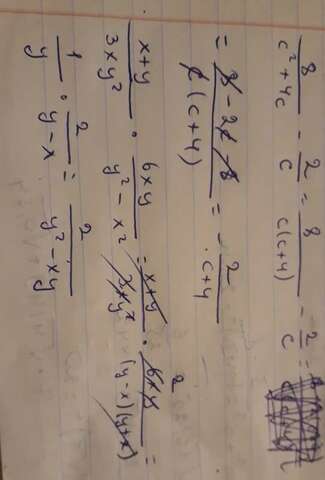 8/(c² + 4c) - 2/c = 8/(c(c+4)) - 2/c =
= (8 - 2c - 8)/(c(c+4)) = - 2/(c+4)
(x+y)/(3xy²) · 6xy/(y² - x²) = (x+y)/(3xy²) · 6xy/((y-x)(y+x)) =
2
1/y · 2/(y-x) = 2/(y² - xy)